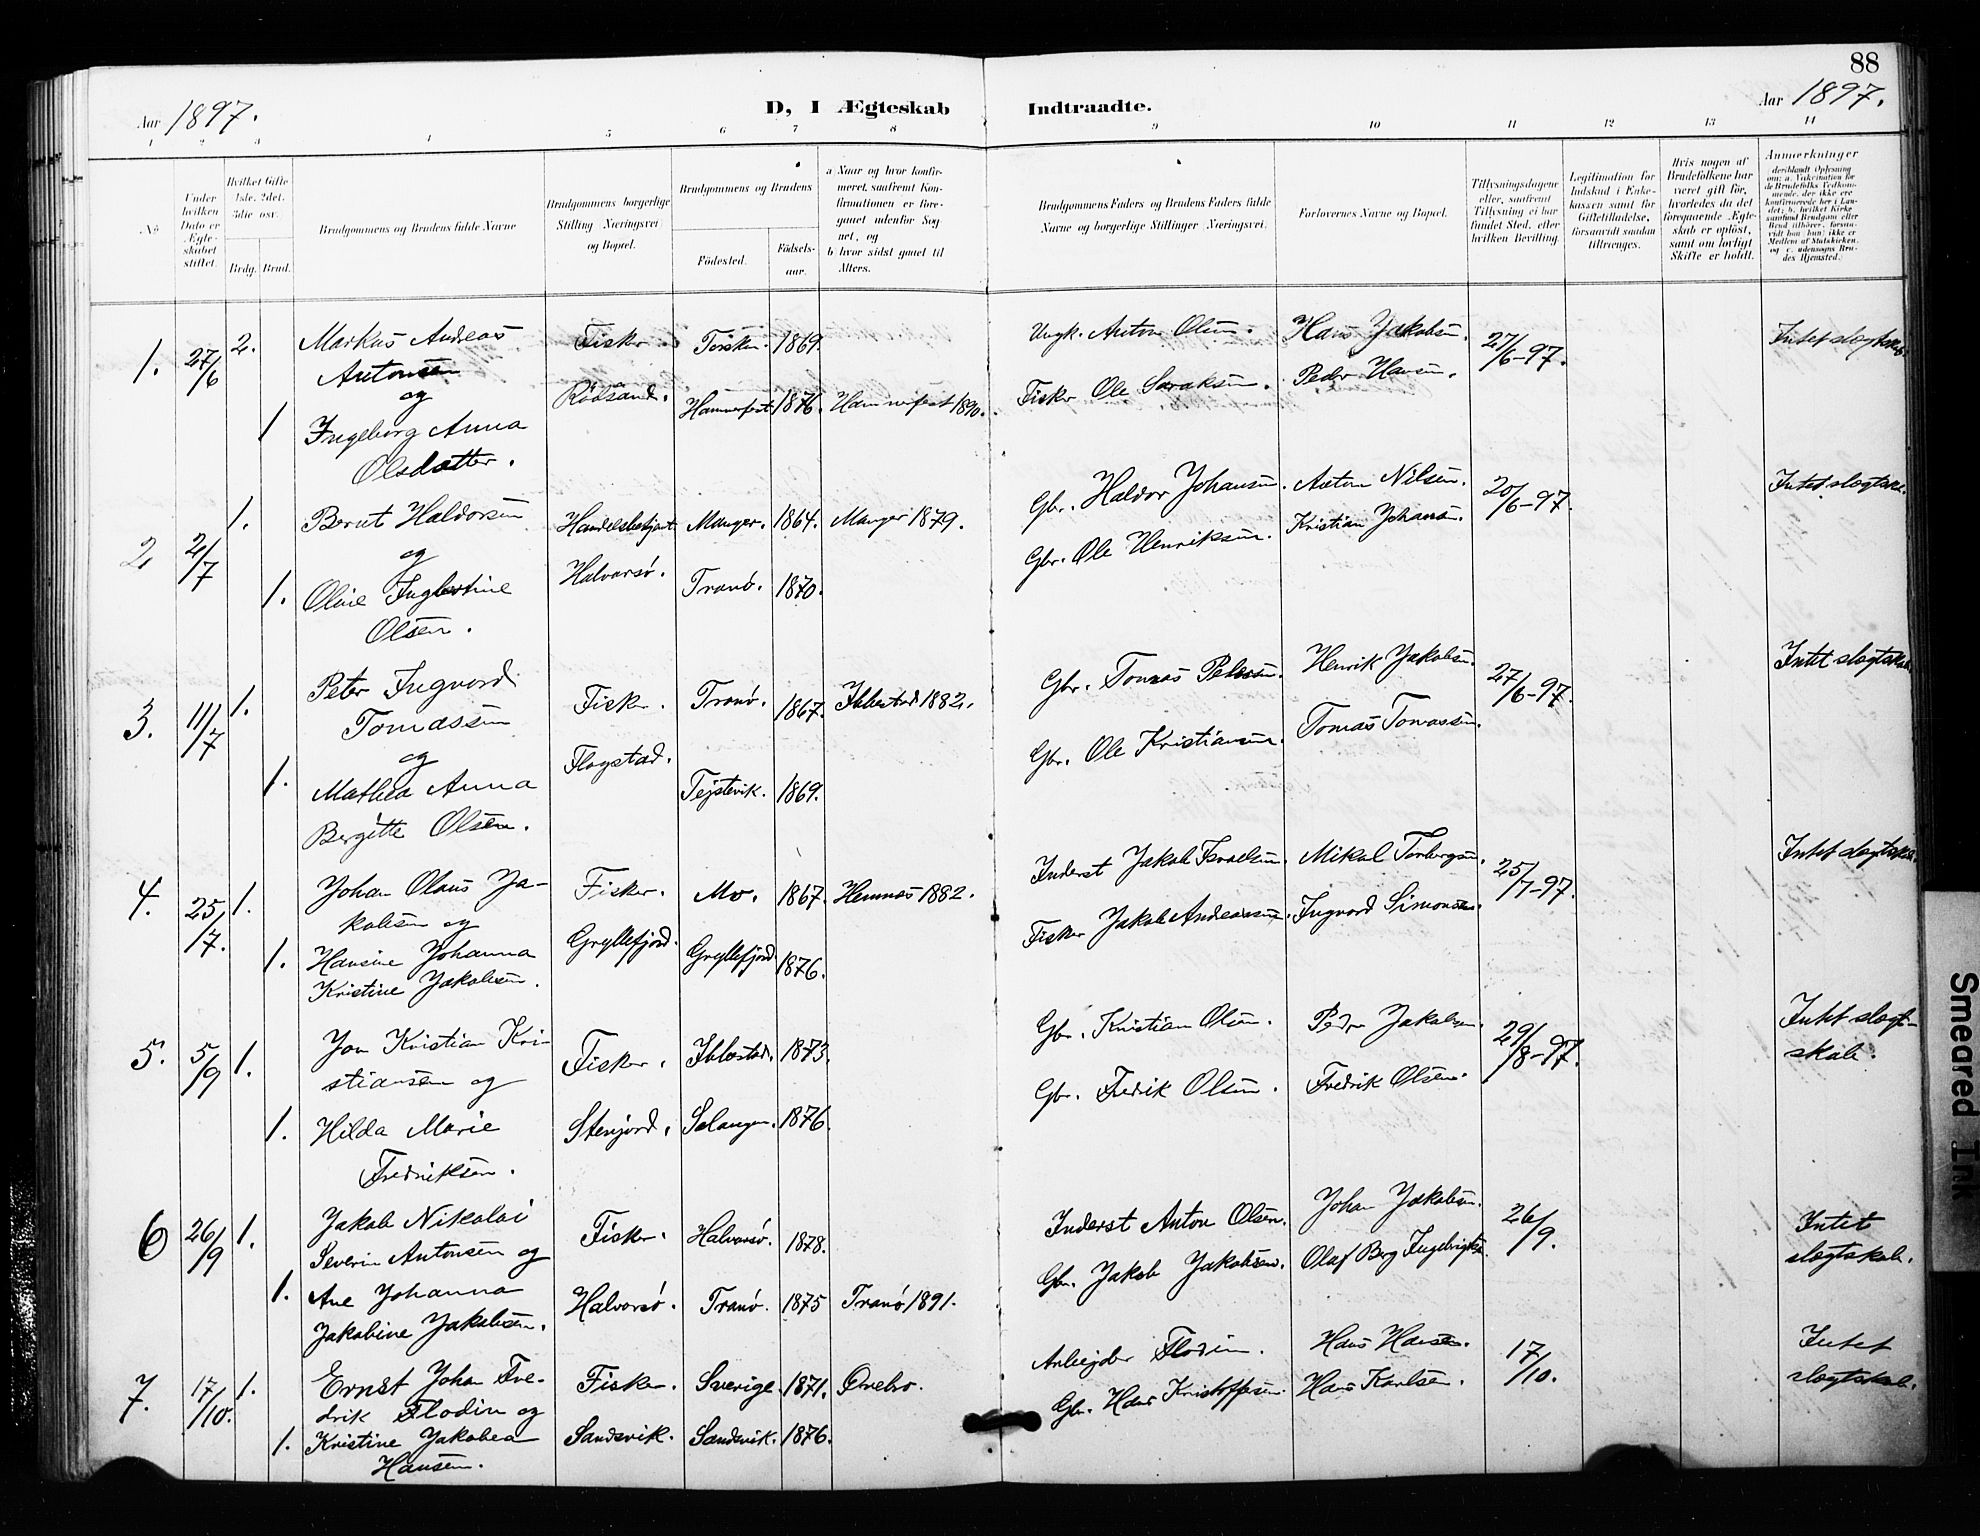 88
Aar 1897.
D, I Ægteskab Indtraadte.
Aar 1897.
1 2 3 4 5 6 7 8 9 10 11 12 13 14
No
Under hvilken Dato er Ægteskabet stiftet.
Hvilket Gifte 1ste, 2det, 3die osv.
Brdg. Brud.
Brudgommens og Brudens fulde Navne
Brudgommens borgerlige Stilling (Næringsvei) og Bopæl.
Brudgommens og Brudens
Födested.
Födselsaar.
a Naar og hvor konfirmeret, saafremt Konfirmationen er foregaaet udenfor Sognet, og
b hvor sidst gaaet til Alters.
Brudgommens Faders og Brudens Faders fulde Navne og borgerlige Stillinger (Næringsvei).
Forlovernes Navne og Bopæl.
Tillysningsdagene eller, saafremt Tillysning ei har fundet Sted, efter hvilken Bevilling.
Legitimation for Indskud i Enkekassen samt for Giftetilladelse, forsaavidt saadan tiltrænges.
Hvis nogen af Brudefolkene har været gift för, hvorledes da det foregaaende Ægteskab er oplöst, samt om lovligt Skifte er holdt.
Anmerkninger
1. 27/6 2. Markus Andreas Antonsen og Fisker. Torsken. 1869. Ungk. Anton Olsen. Hans Jakobsen. 27/6-97. Intet slegtskab.
1 Ingeborg Anna Olsdatter. Rödsand. Hammerfest 1876. Hammerfest 1890. Fisker Ole Saraksen. Peder Hansen.
2 2/7 1. Bernt Haldorsen og Handelsbetjent Manger. 1864. Manger 1879. Gbr. Haldor Johansen. Anton Nilsen. 20/6-97. Intet slegtska.
1. Oline Ingbertine Olsen. Halvarsö. Tranö. 1870. Gbr. Ole Henriksen. Kristian Johansen.
3. 11/7 1. Peter Ingvard Tomassen og Fisker. Tranö. 1867. Ibbestad 1882. Gbr. Tomas Petersen. Henrik Jakobsen. 27/6-97. Intet slegtskab.
1. Mathea Anna Bergitte Olsen. Flagstad. Tejstevik. 1869. Gbr. Ole Kristiansen. Tomas Tomassen.
4. 25/7. 1. Johan Olaus Jakobsen og Fisker. Mo. 1867. Hemnæs 1882. Inderst Jakob Israelsen. Mikal Torbergsen. 25/7-97. Intet slegtskab.
1. Hansine Johanna Kristine Jakobsen. Gryllefjord. Gryllefjord 1876. Fisker Jakob Andreassen. Ingvard Simonsen.
5. 5/9 1. Jon Kristian Kristiansen og Fisker. Ibbestad. 1873. Gbr. Kristian Olsen. Peder Jakobsen. 29/8-97. Intet slegtskab.
1. Hilda Marie Fredriksen. Stenjord. Salangen. 1876. Gbr. Fredrik Olsen. Fredrik Olsen.
6 26/9 1. Jakob Nikolai Severin Antonsen og Fisker. Halvarsö. 1878. Inderst Anton Olsen. Johan Jakobsen. 26/9. Intet slegtskab.
1. Ane Johanna Jakobine Jakobsen. Halvarsö. Tranö. 1875 Tranö 1891. Gbr. Jakob Jakobsen. Olaf Berg Ingebrigtsen.
7. 17/10. 1. Ernst Johan Fredrik Flodin og Fisker. Sverige. 1871. Örebro. Arbejder Flodin. Hans Hansen. 17/10. Intet slegtskab.
1. Kristine Jakobea Hansen. Sandsvik. Sandsvik. 1876. Gbr. Hans Kristoffersen. Hans Karlsen.
Smeared Ink